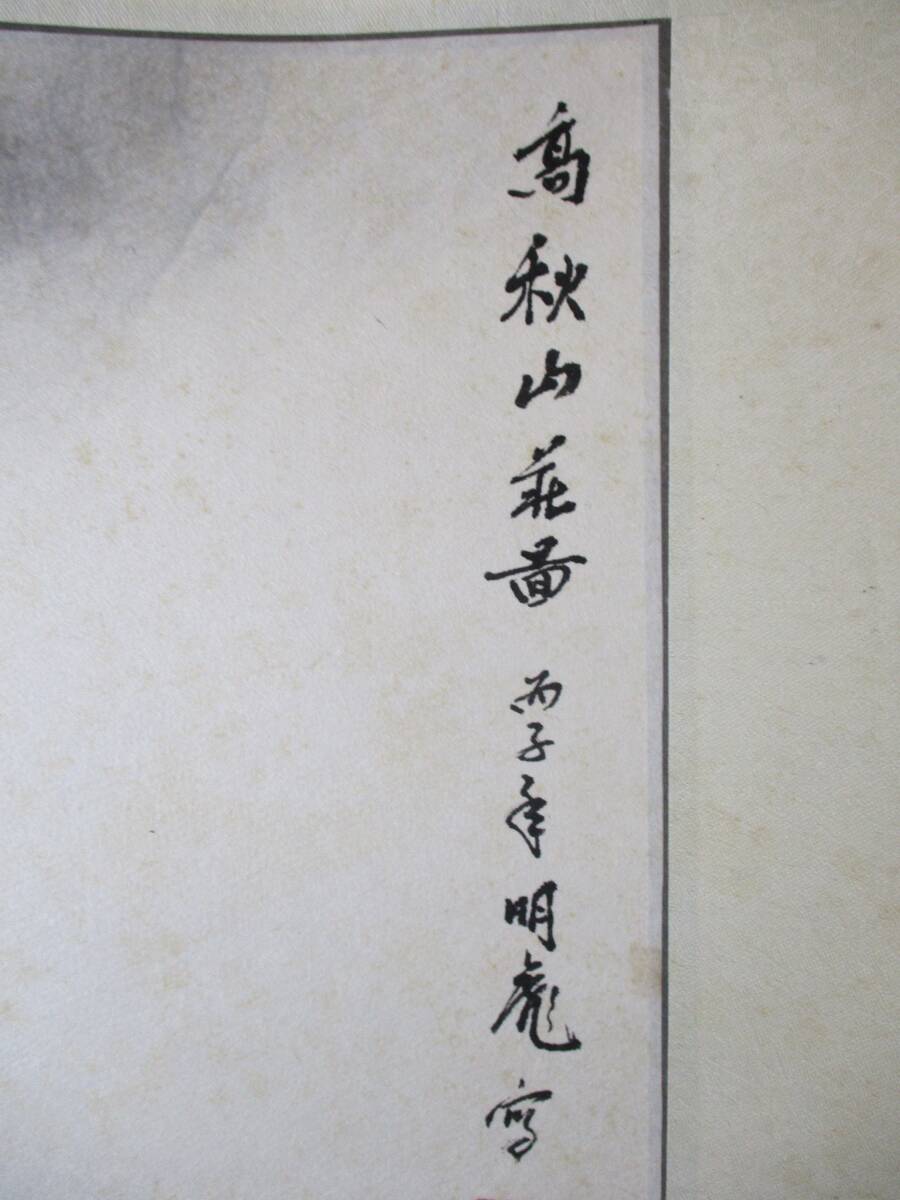 高秋山莊圖 丙子年 明彪寫